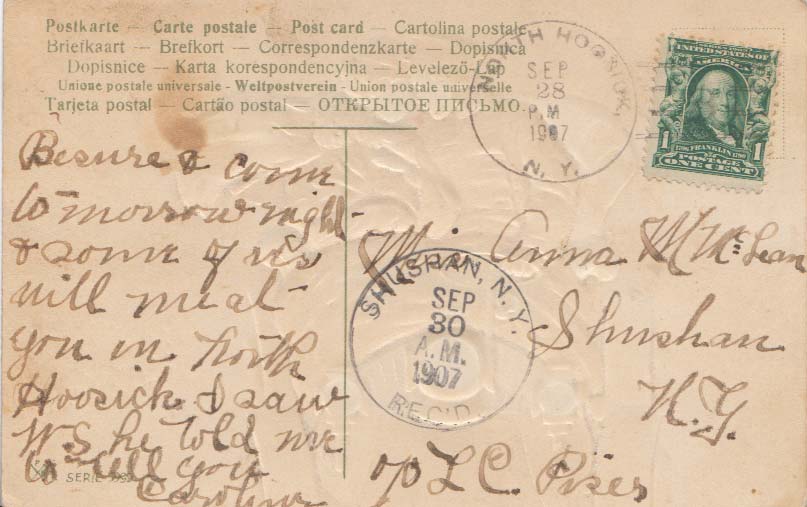 Postkarte — Carte postale — Post card — Cartolina postale
Briefkaart — Brefkort — Correspondenzkarte — Dopisnica
Dopisnice — Karta korespondencyjna — Levelező-Lap
Unione postale universale - Weltpostverein - Union postale universelle
Tarjeta postal — Cartão postal — ОТКРЫТОЕ ПИСЬМО.
NORTH HOOSICK,
SEP
28
P.M
1907
N. Y.
UNITED STATES OF
AMERICA
1 1706 FRANKLIN 1790 1
POSTAGE
ONE CENT
Be sure & come
tomorrow night
& some of us
will meat
you in North
Hoosick I saw
WS he told me
to tell you
Caroline
SERIE
Anna M McLean
Shushan
N.Y.
SHUSHAN, N.Y.
SEP
30
A.M.
1907
REC'D.
c/o L C Piser